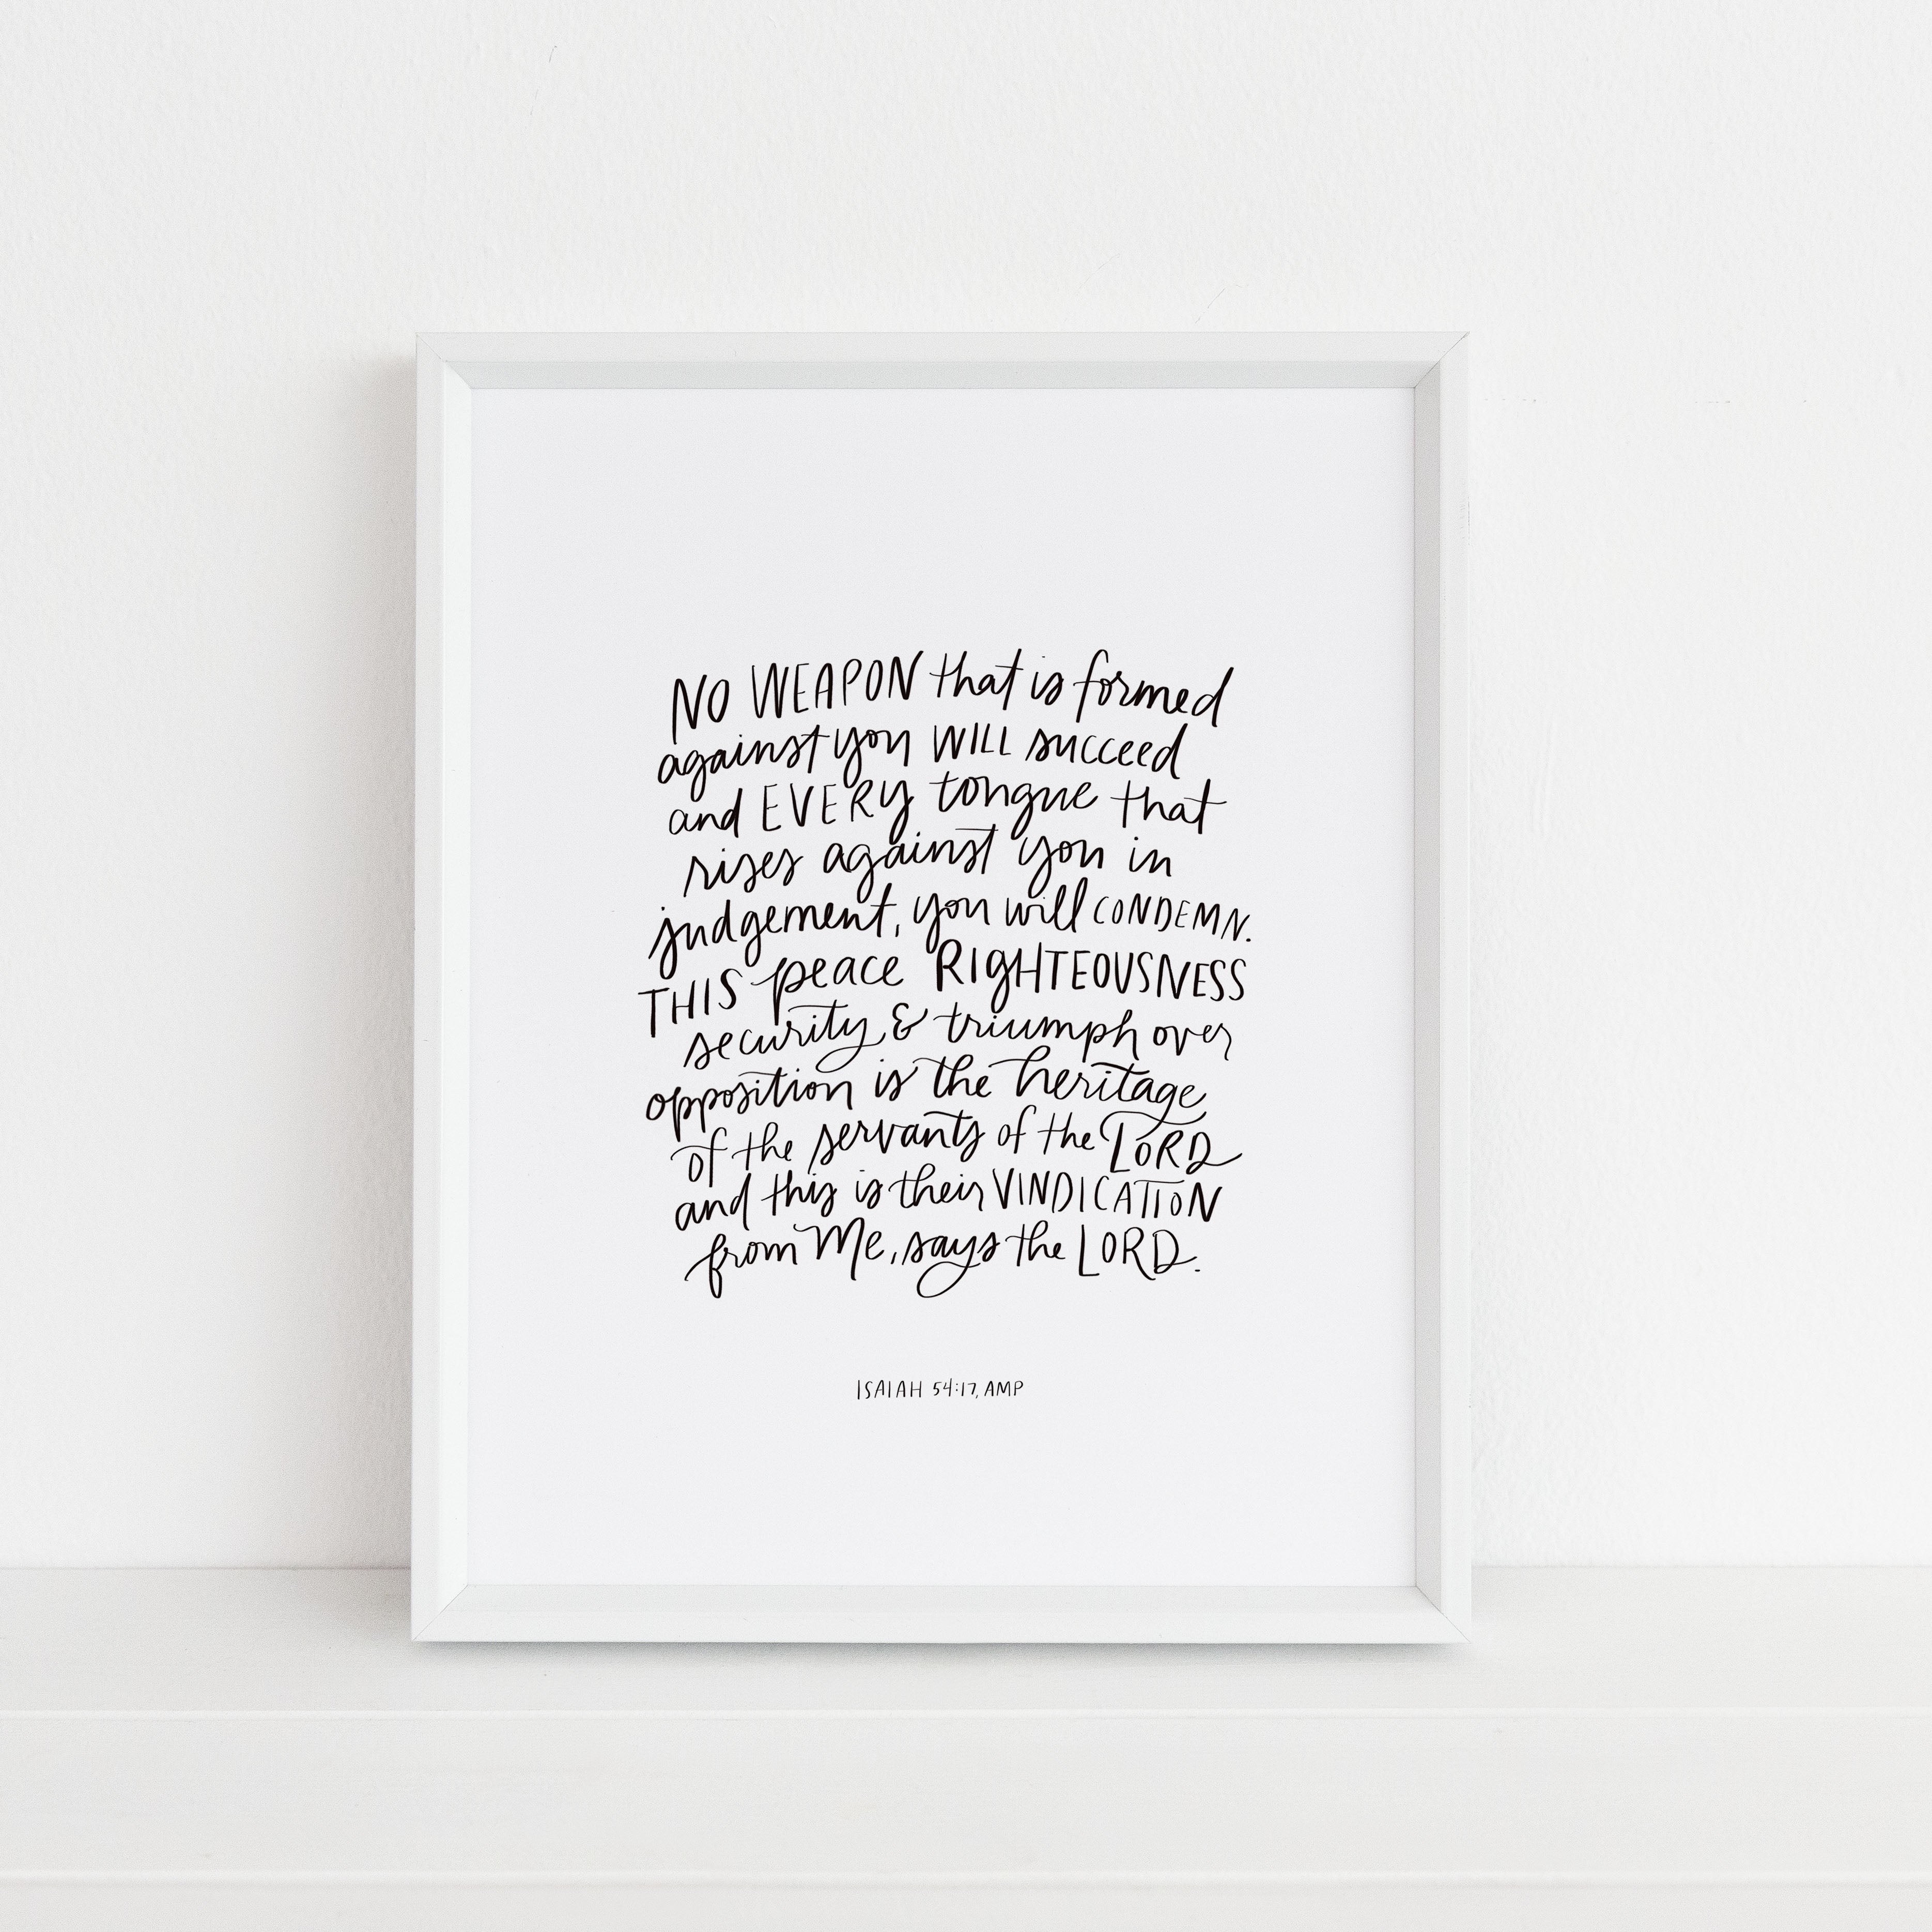 NO WEAPON that is formed
against you WILL succeed
and EVERY tongue that
rises against you in
judgement, you will CONDEMN.
THIS peace RIGHTEOUSNESS
security & triumph over
opposition is the heritage
of the servants of the LORD
and this is their VINDICATION
from Me, says the LORD.
ISAIAH 54:17, AMP